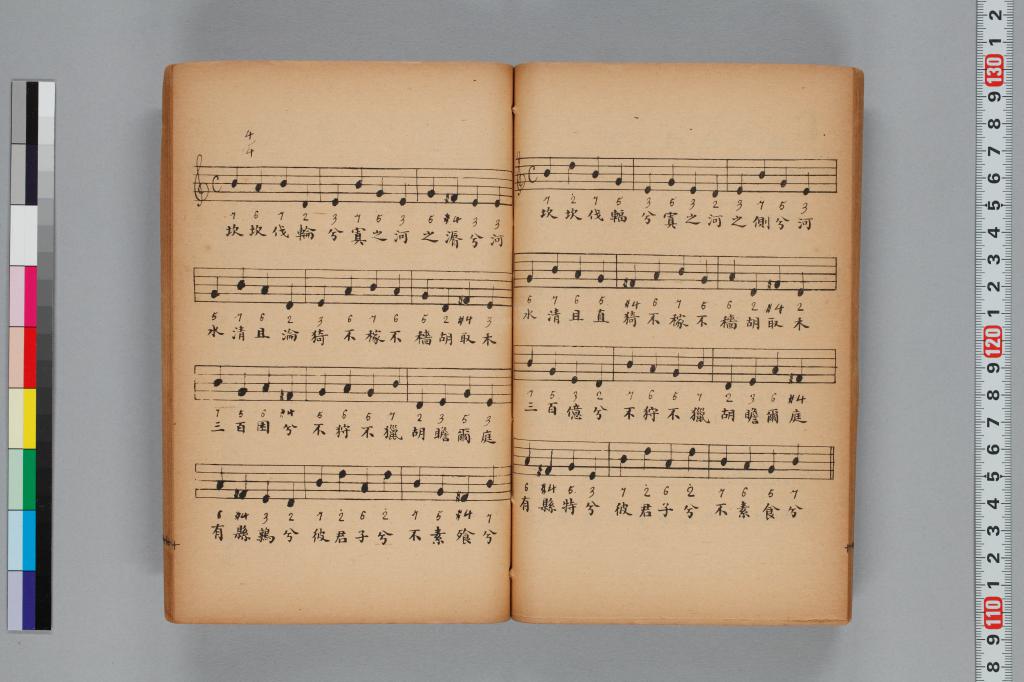 4/4
7 6 7 2 3 7 5 3 5 #4 3 3
坎坎伐輪兮寘之河之漘兮河
5 7 6 2 3 6 7 6 5 2 #4 3
水清且淪猗不稼不穡胡取禾
7 5 6 #4 5 6 5 7 2 3 5 3
三百囷兮不狩不獵胡瞻爾庭
6 #4 3 2 7 2 6 2 7 5 #4 7
有縣鶉兮彼君子兮不素飧兮
7 2 7 5 3 5 3 2 3 7 5 3
坎坎伐輻兮寘之河之側兮河
5 7 6 5 #4 6 7 5 6 2 #4 2
水清且直猗不稼不穡胡取禾
7 5 3 2 7 6 5 7 2 3 6 #4
三百億兮不狩不獵胡瞻爾庭
6 #4 5 3 7 2 6 2 7 6 5 7
有縣特兮彼君子兮不素食兮
8 9 110 1 2 3 4 5 6 7 8 9 120 1 2 3 4 5 6 7 8 9 130 1 2